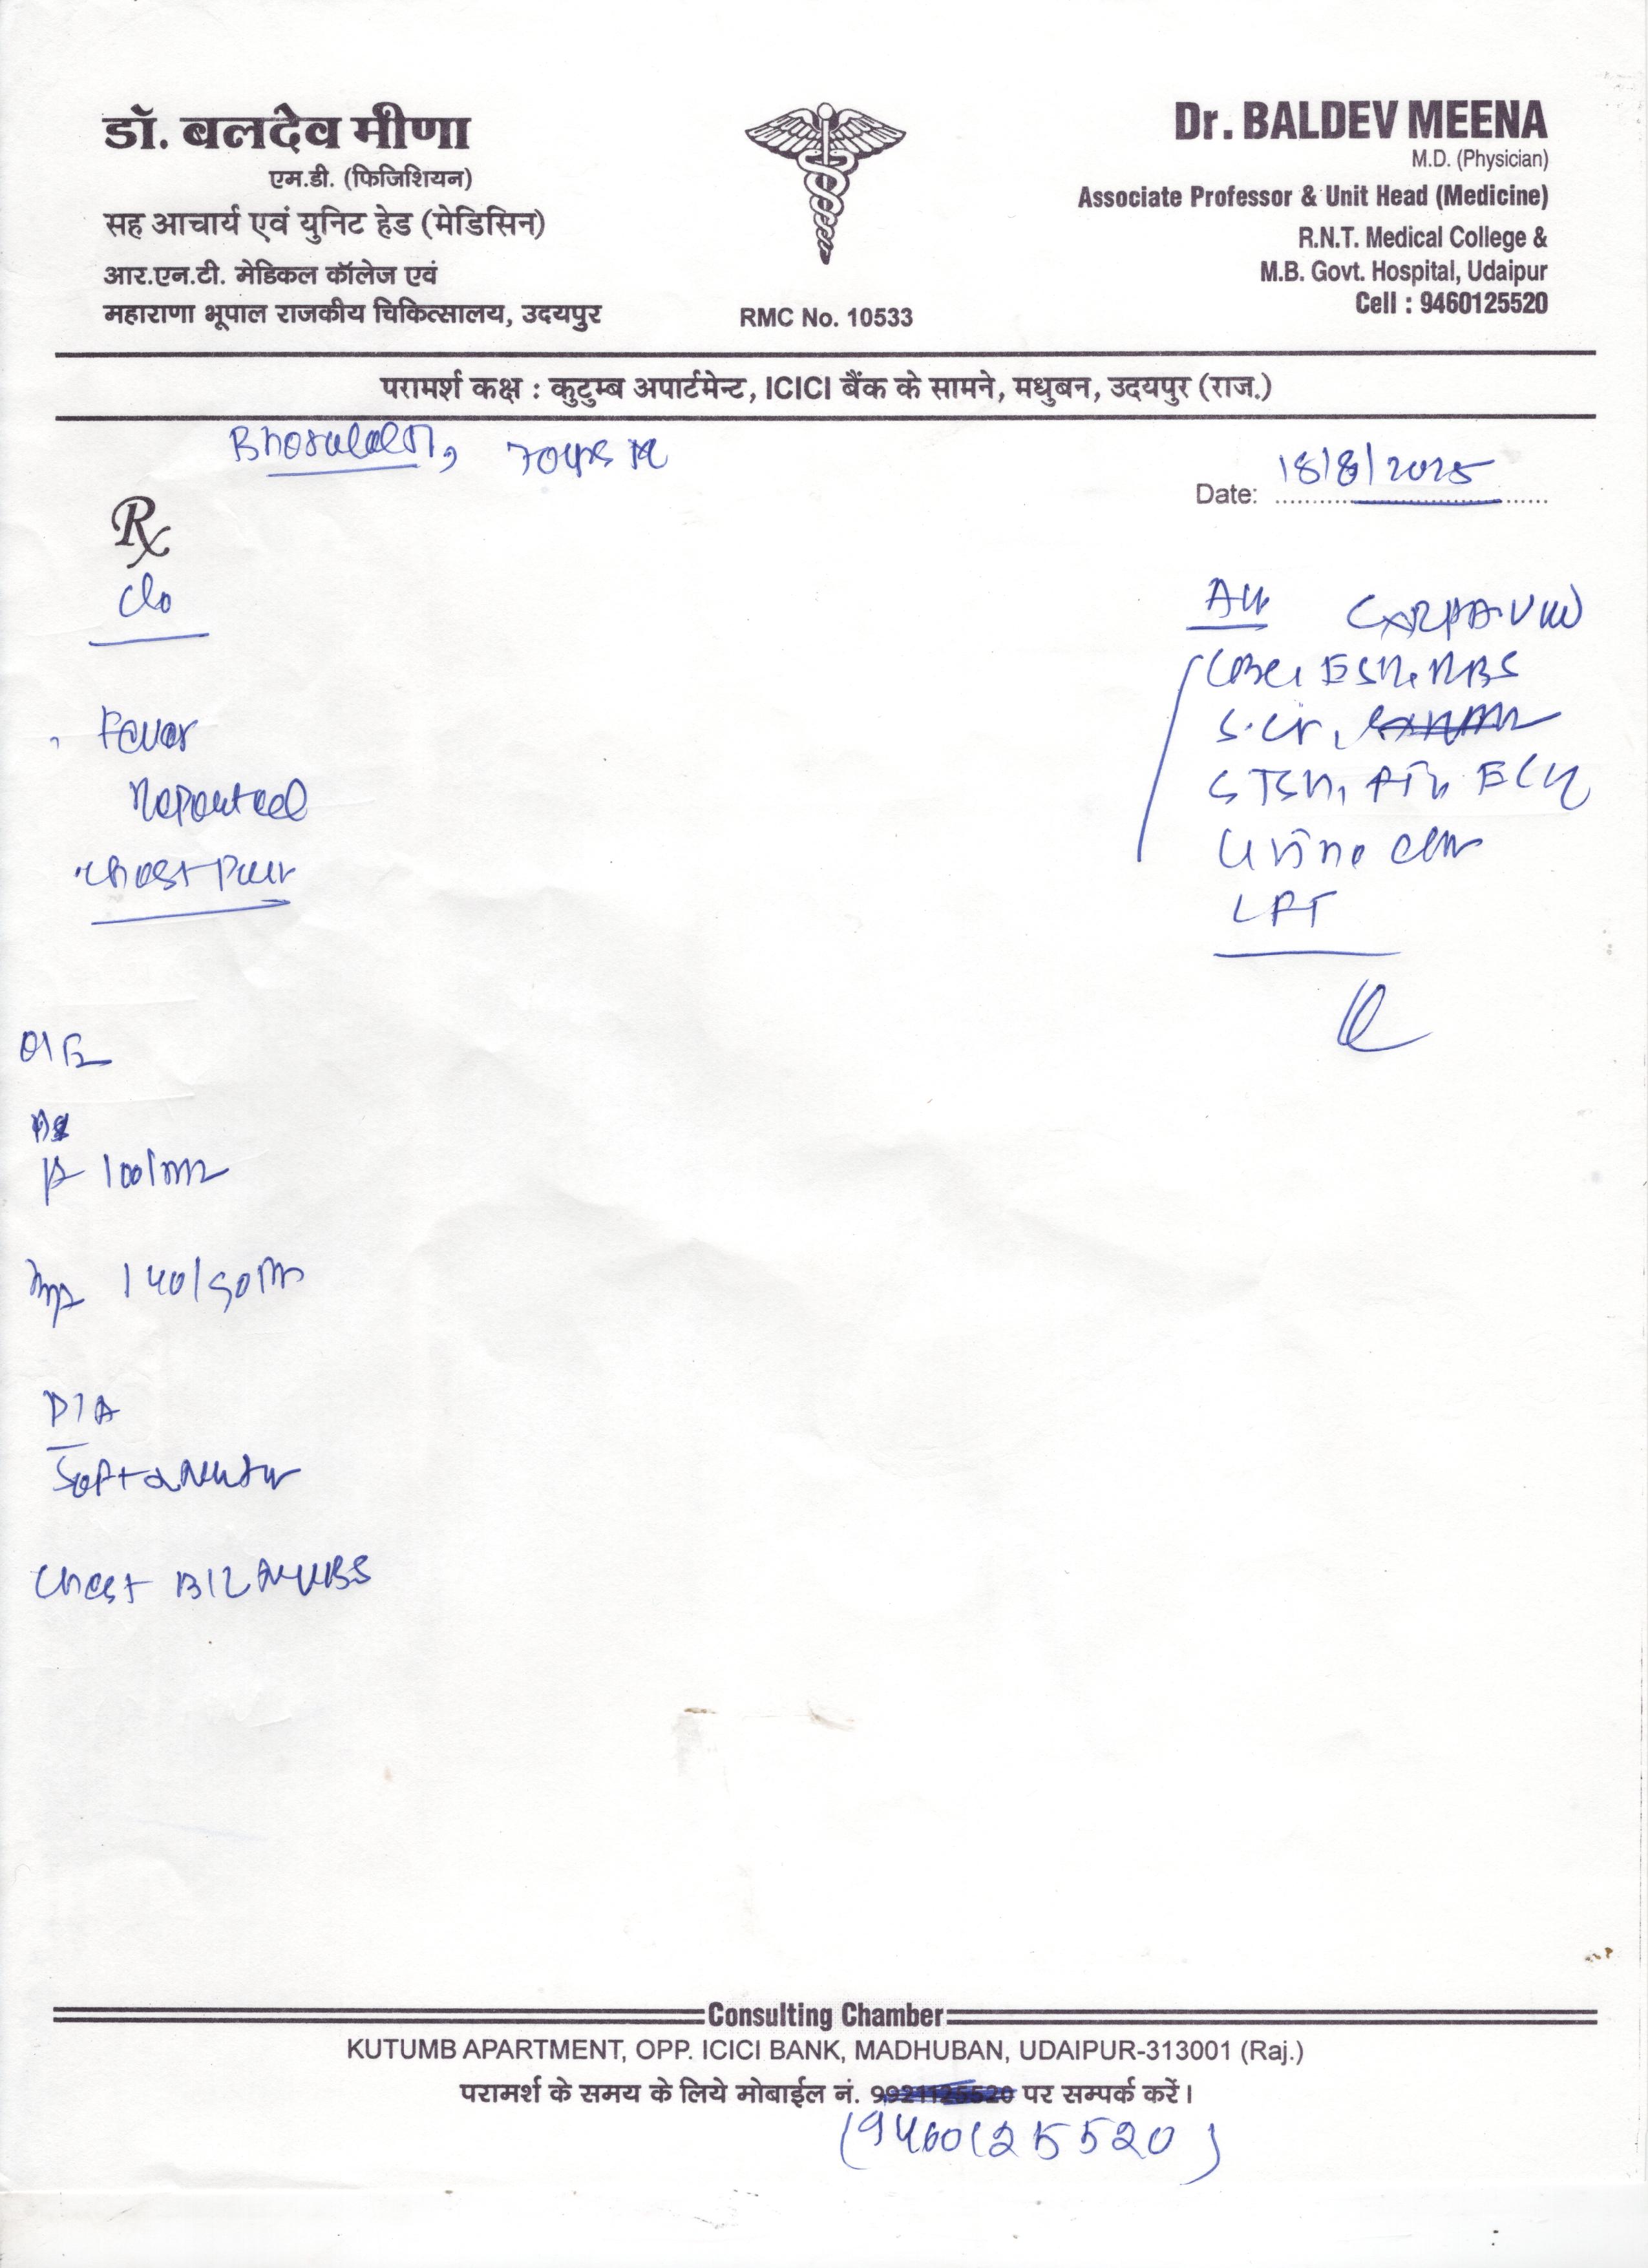 डॉ. बलदेव मीणा
एम.डी. (फिजिशियन)
सह आचार्य एवं युनिट हेड (मेडिसिन)
आर.एन.टी. मेडिकल कॉलेज एवं
महाराणा भूपाल राजकीय चिकित्सालय, उदयपुर
RMC No. 10533
Dr. BALDEV MEENA
M.D. (Physician)
Associate Professor & Unit Head (Medicine)
R.N.T. Medical College &
M.B. Govt. Hospital, Udaipur
Cell : 9460125520
परामर्श कक्ष : कुटुम्ब अपार्टमेन्ट, ICICI बैंक के सामने, मधुबन, उदयपुर (राज.)
70yrs M
Date: 18/8/2025
Rx
C/o
Fever
Repeated
Chest Pain
Adv CXR PA view
CBC, ESR, RBS
S.Cr,
ECG
Urine
LFT
O/E
P 100/m
140/90
P/A
Soft
Chest B/L
Consulting Chamber
KUTUMB APARTMENT, OPP. ICICI BANK, MADHUBAN, UDAIPUR-313001 (Raj.)
परामर्श के समय के लिये मोबाईल नं. 9921125520 पर सम्पर्क करें।
(9460125520)